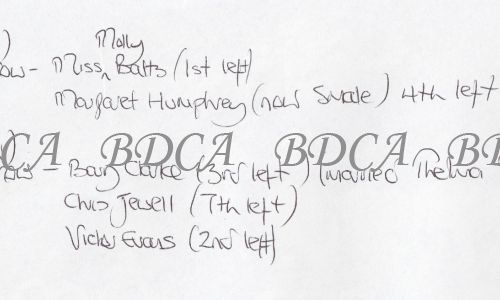 )
Molly
row - Miss ^ Balts (1st left)
Margaret Humphrey (now Swale) 4th left
)
CA BDCA BDCA BD
- Barry Clarke (3rd left) (married Thelma
Chris Jewell (7th left)
Vicky Evans (2nd left)